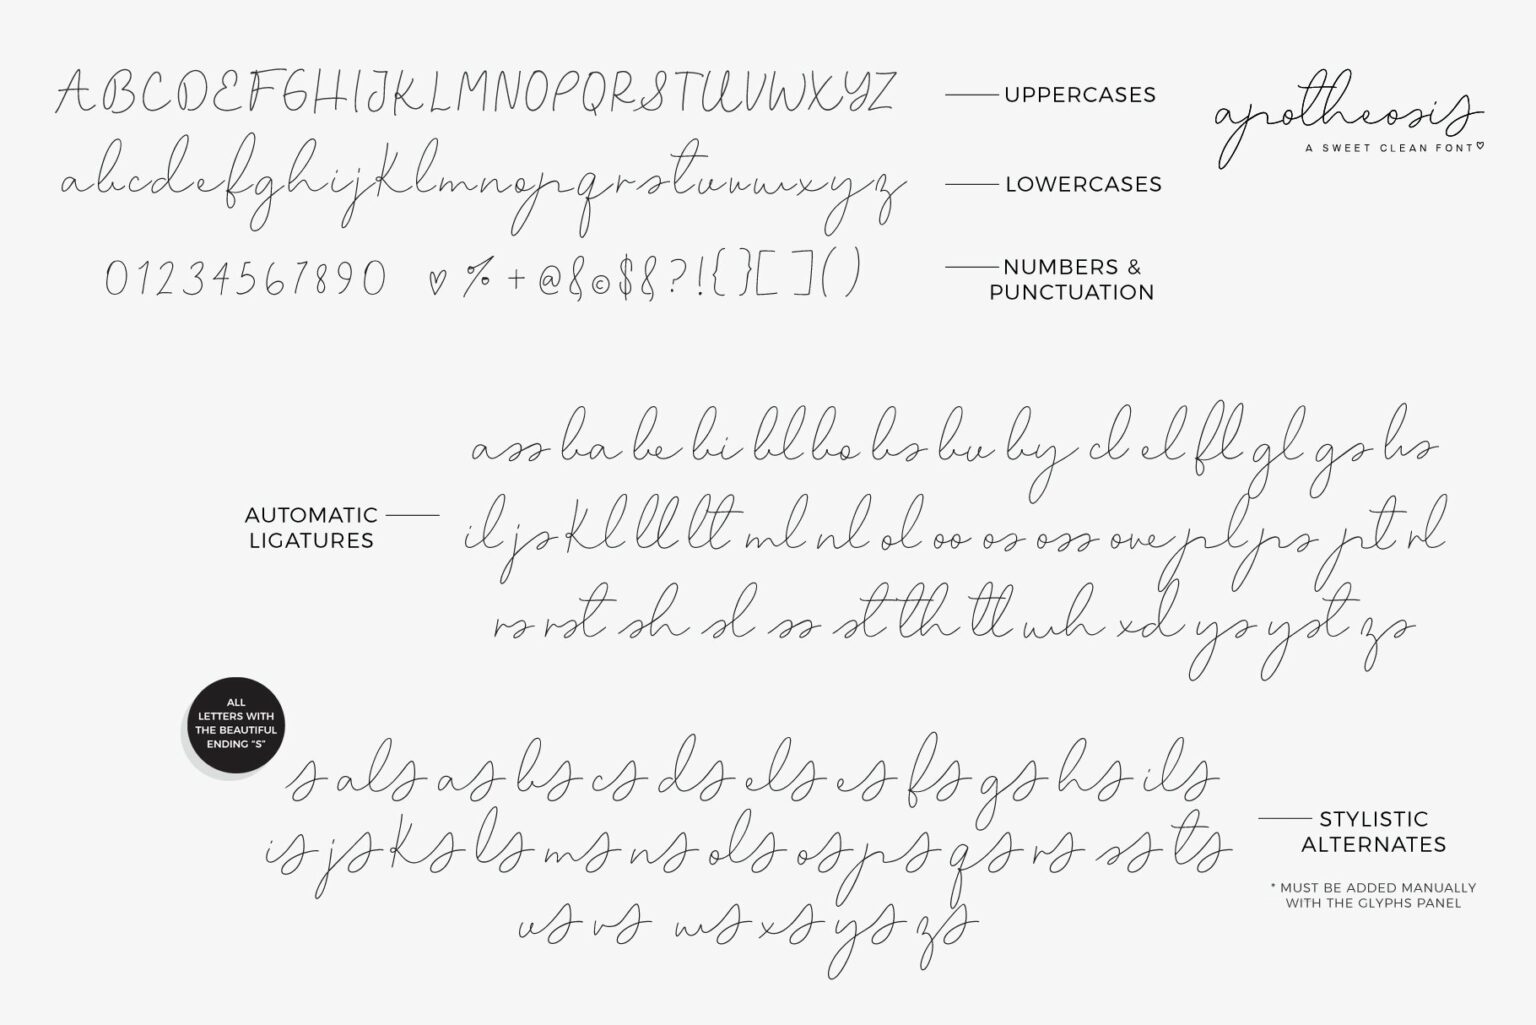 ABCDEFGHIJKLMNOPQRSTUVWXYZ
UPPERCASES
apotheosis
A SWEET CLEAN FONT♡
abcdefghijklmnopqrstuvwxyz
LOWERCASES
01234567890 ♡ % + @ & © $ & ? ! { } [ ] ( )
NUMBERS &
PUNCTUATION
ass ba be bi bl bo bs bu by cl el fl gl gs hs
AUTOMATIC
LIGATURES
il js kl ll lt ml nl ol oo os oss ove pl ps pt rl
rs rst sh sl ss st th tl wh xd ys yst zs
ALL
LETTERS WITH
THE BEAUTIFUL
ENDING "S"
s als as bs cs ds els es fs gs hs ils
is js ks ls ms ns ols os ps qs rs ss ts
STYLISTIC
ALTERNATES
* MUST BE ADDED MANUALLY
WITH THE GLYPHS PANEL
us vs ws xs ys zs